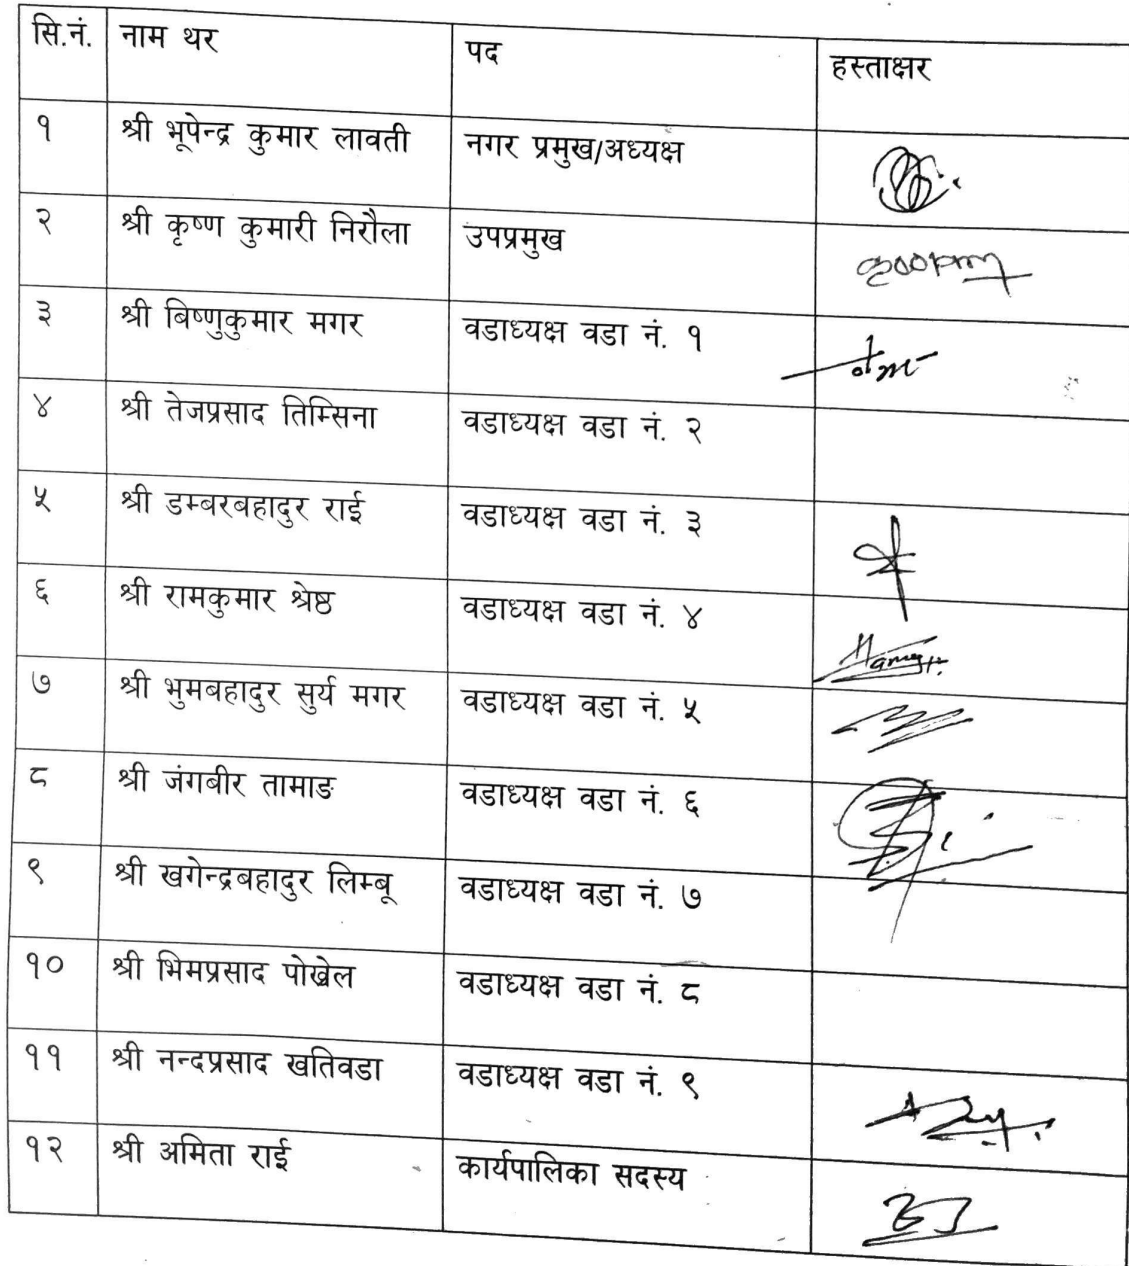 सि.नं. नाम थर पद हस्ताक्षर
१ श्री भूपेन्द्र कुमार लावती नगर प्रमुख/अध्यक्ष
२ श्री कृष्ण कुमारी निरौला उपप्रमुख
३ श्री बिष्णुकुमार मगर वडाध्यक्ष वडा नं. १
४ श्री तेजप्रसाद तिम्सिना वडाध्यक्ष वडा नं. २
५ श्री डम्बरबहादुर राई वडाध्यक्ष वडा नं. ३
६ श्री रामकुमार श्रेष्ठ वडाध्यक्ष वडा नं. ४
७ श्री भुमबहादुर सुर्य मगर वडाध्यक्ष वडा नं. ५
८ श्री जंगबीर तामाङ वडाध्यक्ष वडा नं. ६
९ श्री खगेन्द्रबहादुर लिम्बू वडाध्यक्ष वडा नं. ७
१० श्री भिमप्रसाद पोखेल वडाध्यक्ष वडा नं. ८
११ श्री नन्दप्रसाद खतिवडा वडाध्यक्ष वडा नं. ९
१२ श्री अमिता राई कार्यपालिका सदस्य